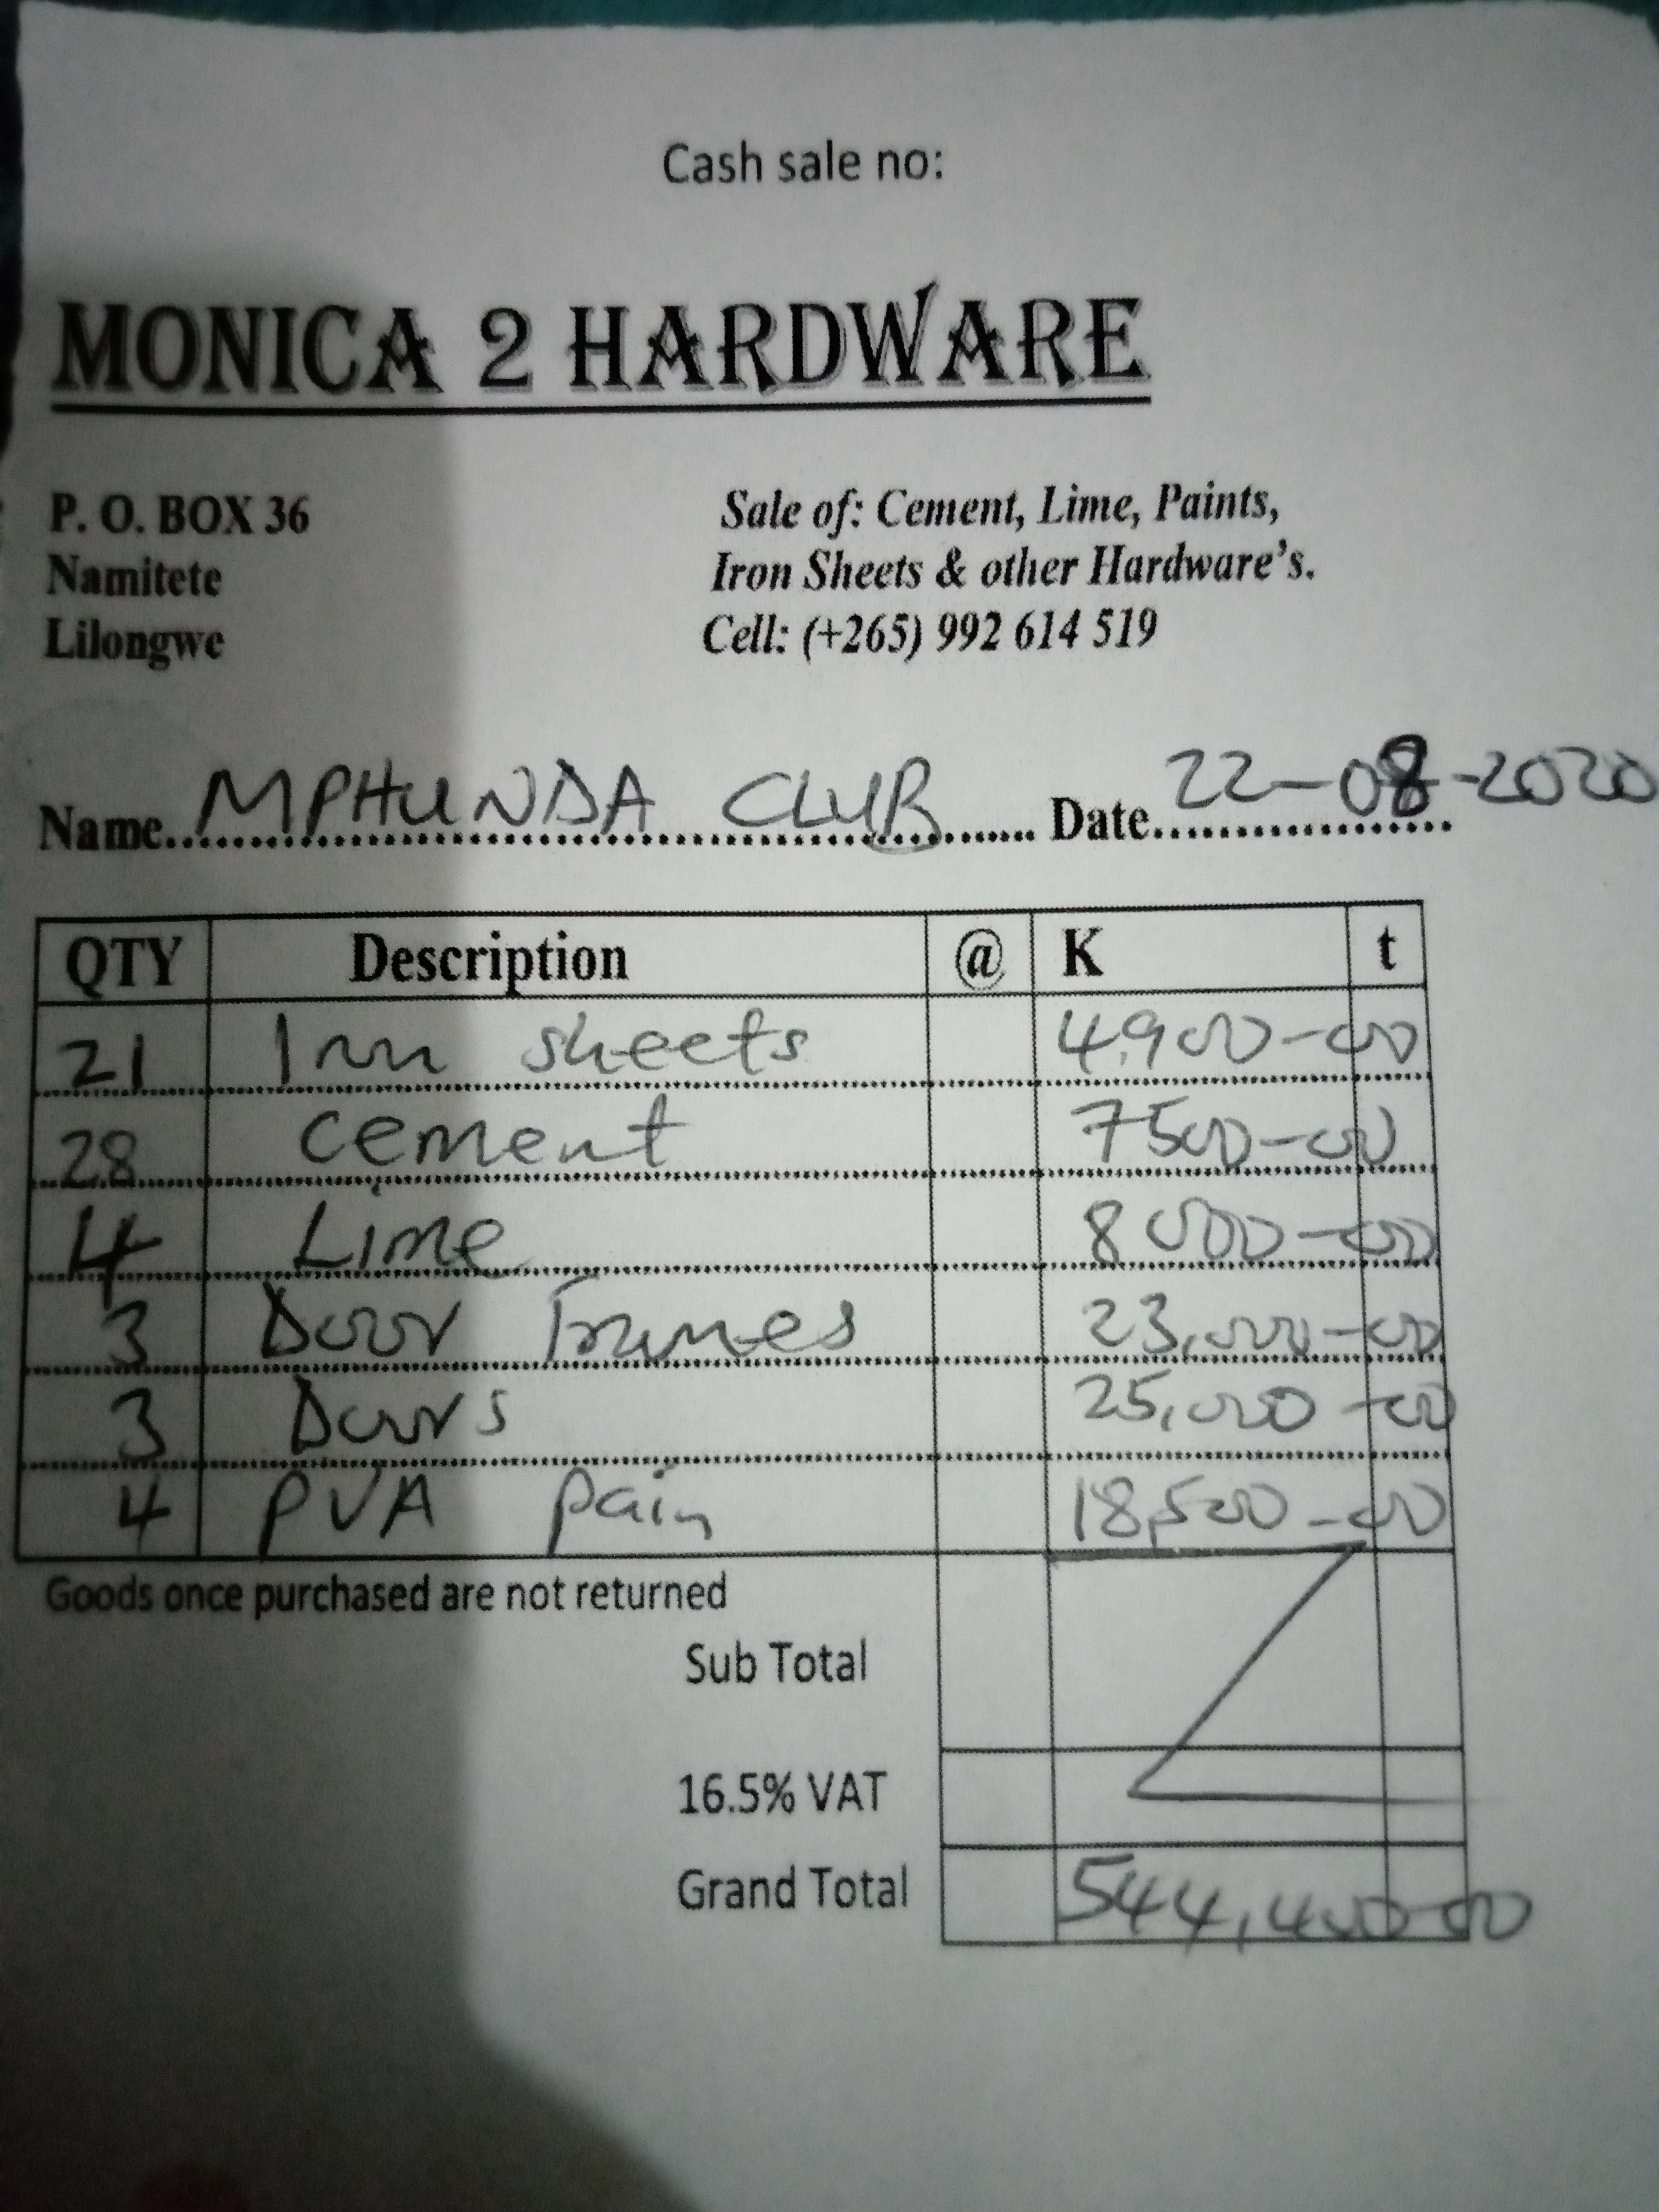 Cash sale no:
MONICA 2 HARDWARE
P. O. BOX 36
Namitete
Lilongwe
Sale of: Cement, Lime, Paints,
Iron Sheets & other Hardware's.
Cell: (+265) 992 614 519
Name MPHUNDA CLUB Date 22-08-2020
QTY Description @ K t
21 Iron sheets 4,900-00
28 Cement 7500-00
4 Lime 8000-00
3 Door Frames 23,000-00
3 Doors 25,000-00
4 PVA pain 18,500-00
Goods once purchased are not returned
Sub Total
16.5% VAT
Grand Total 544,400-00